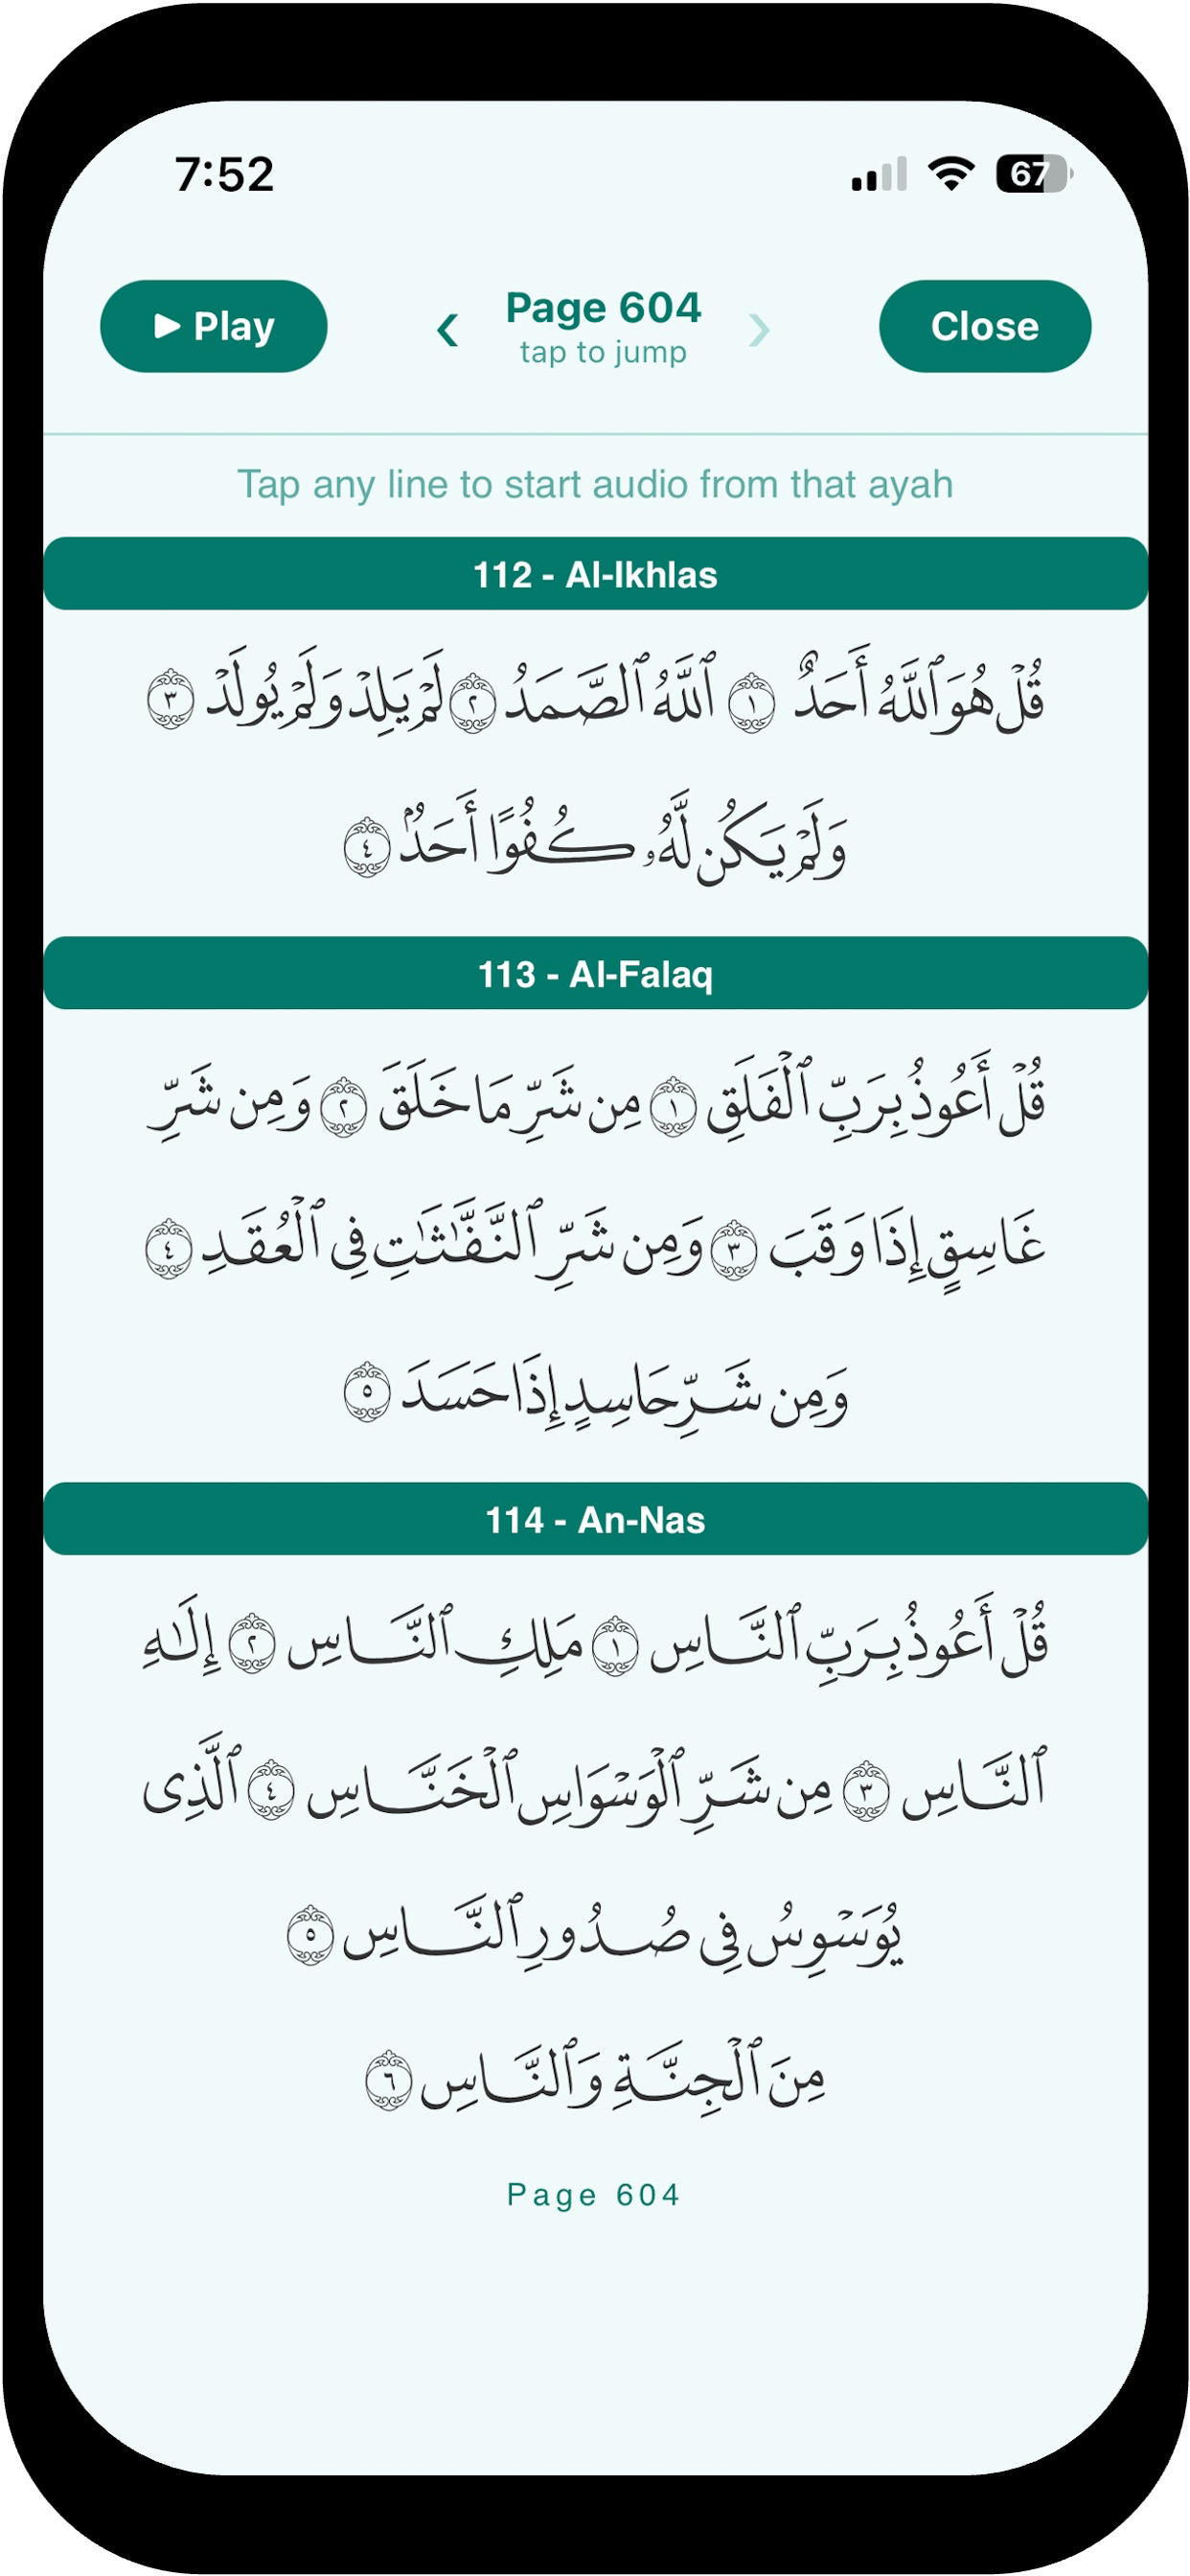 7:52 67
Play ‹ Page 604 › Close
tap to jump
Tap any line to start audio from that ayah
112 - Al-Ikhlas
قُلْ هُوَ ٱللَّهُ أَحَدٌ ١ ٱللَّهُ ٱلصَّمَدُ ٢ لَمْ يَلِدْ وَلَمْ يُولَدْ ٣
وَلَمْ يَكُن لَّهُۥ كُفُوًا أَحَدٌۢ ٤
113 - Al-Falaq
قُلْ أَعُوذُ بِرَبِّ ٱلْفَلَقِ ١ مِن شَرِّ مَا خَلَقَ ٢ وَمِن شَرِّ
غَاسِقٍ إِذَا وَقَبَ ٣ وَمِن شَرِّ ٱلنَّفَّٰثَٰتِ فِى ٱلْعُقَدِ ٤
وَمِن شَرِّ حَاسِدٍ إِذَا حَسَدَ ٥
114 - An-Nas
قُلْ أَعُوذُ بِرَبِّ ٱلنَّاسِ ١ مَلِكِ ٱلنَّاسِ ٢ إِلَٰهِ
ٱلنَّاسِ ٣ مِن شَرِّ ٱلْوَسْوَاسِ ٱلْخَنَّاسِ ٤ ٱلَّذِى
يُوَسْوِسُ فِى صُدُورِ ٱلنَّاسِ ٥
مِنَ ٱلْجِنَّةِ وَٱلنَّاسِ ٦
Page 604